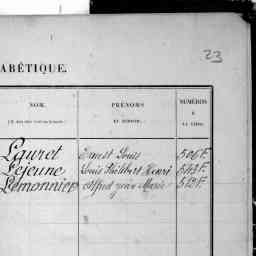 23
ABÉTIQUE.
NOM. PRÉNOMS NUMÉROS
ET SURNOMS. À
LA LISTE.
Lauret Ernest Louis 506 F.
Lejeune Louis Philibert Henri 543 F.
Lemonnier Alfred Jean Marie 512 F.